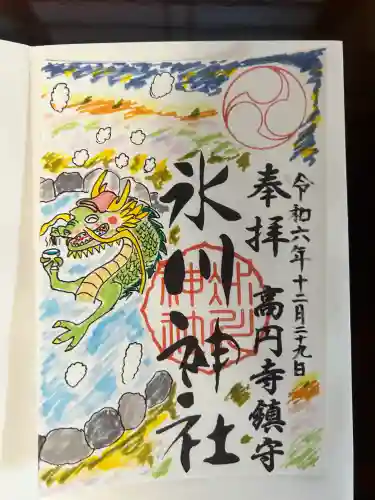 令和六年十二月二十九日
奉拝
高円寺鎮守
氷川神社